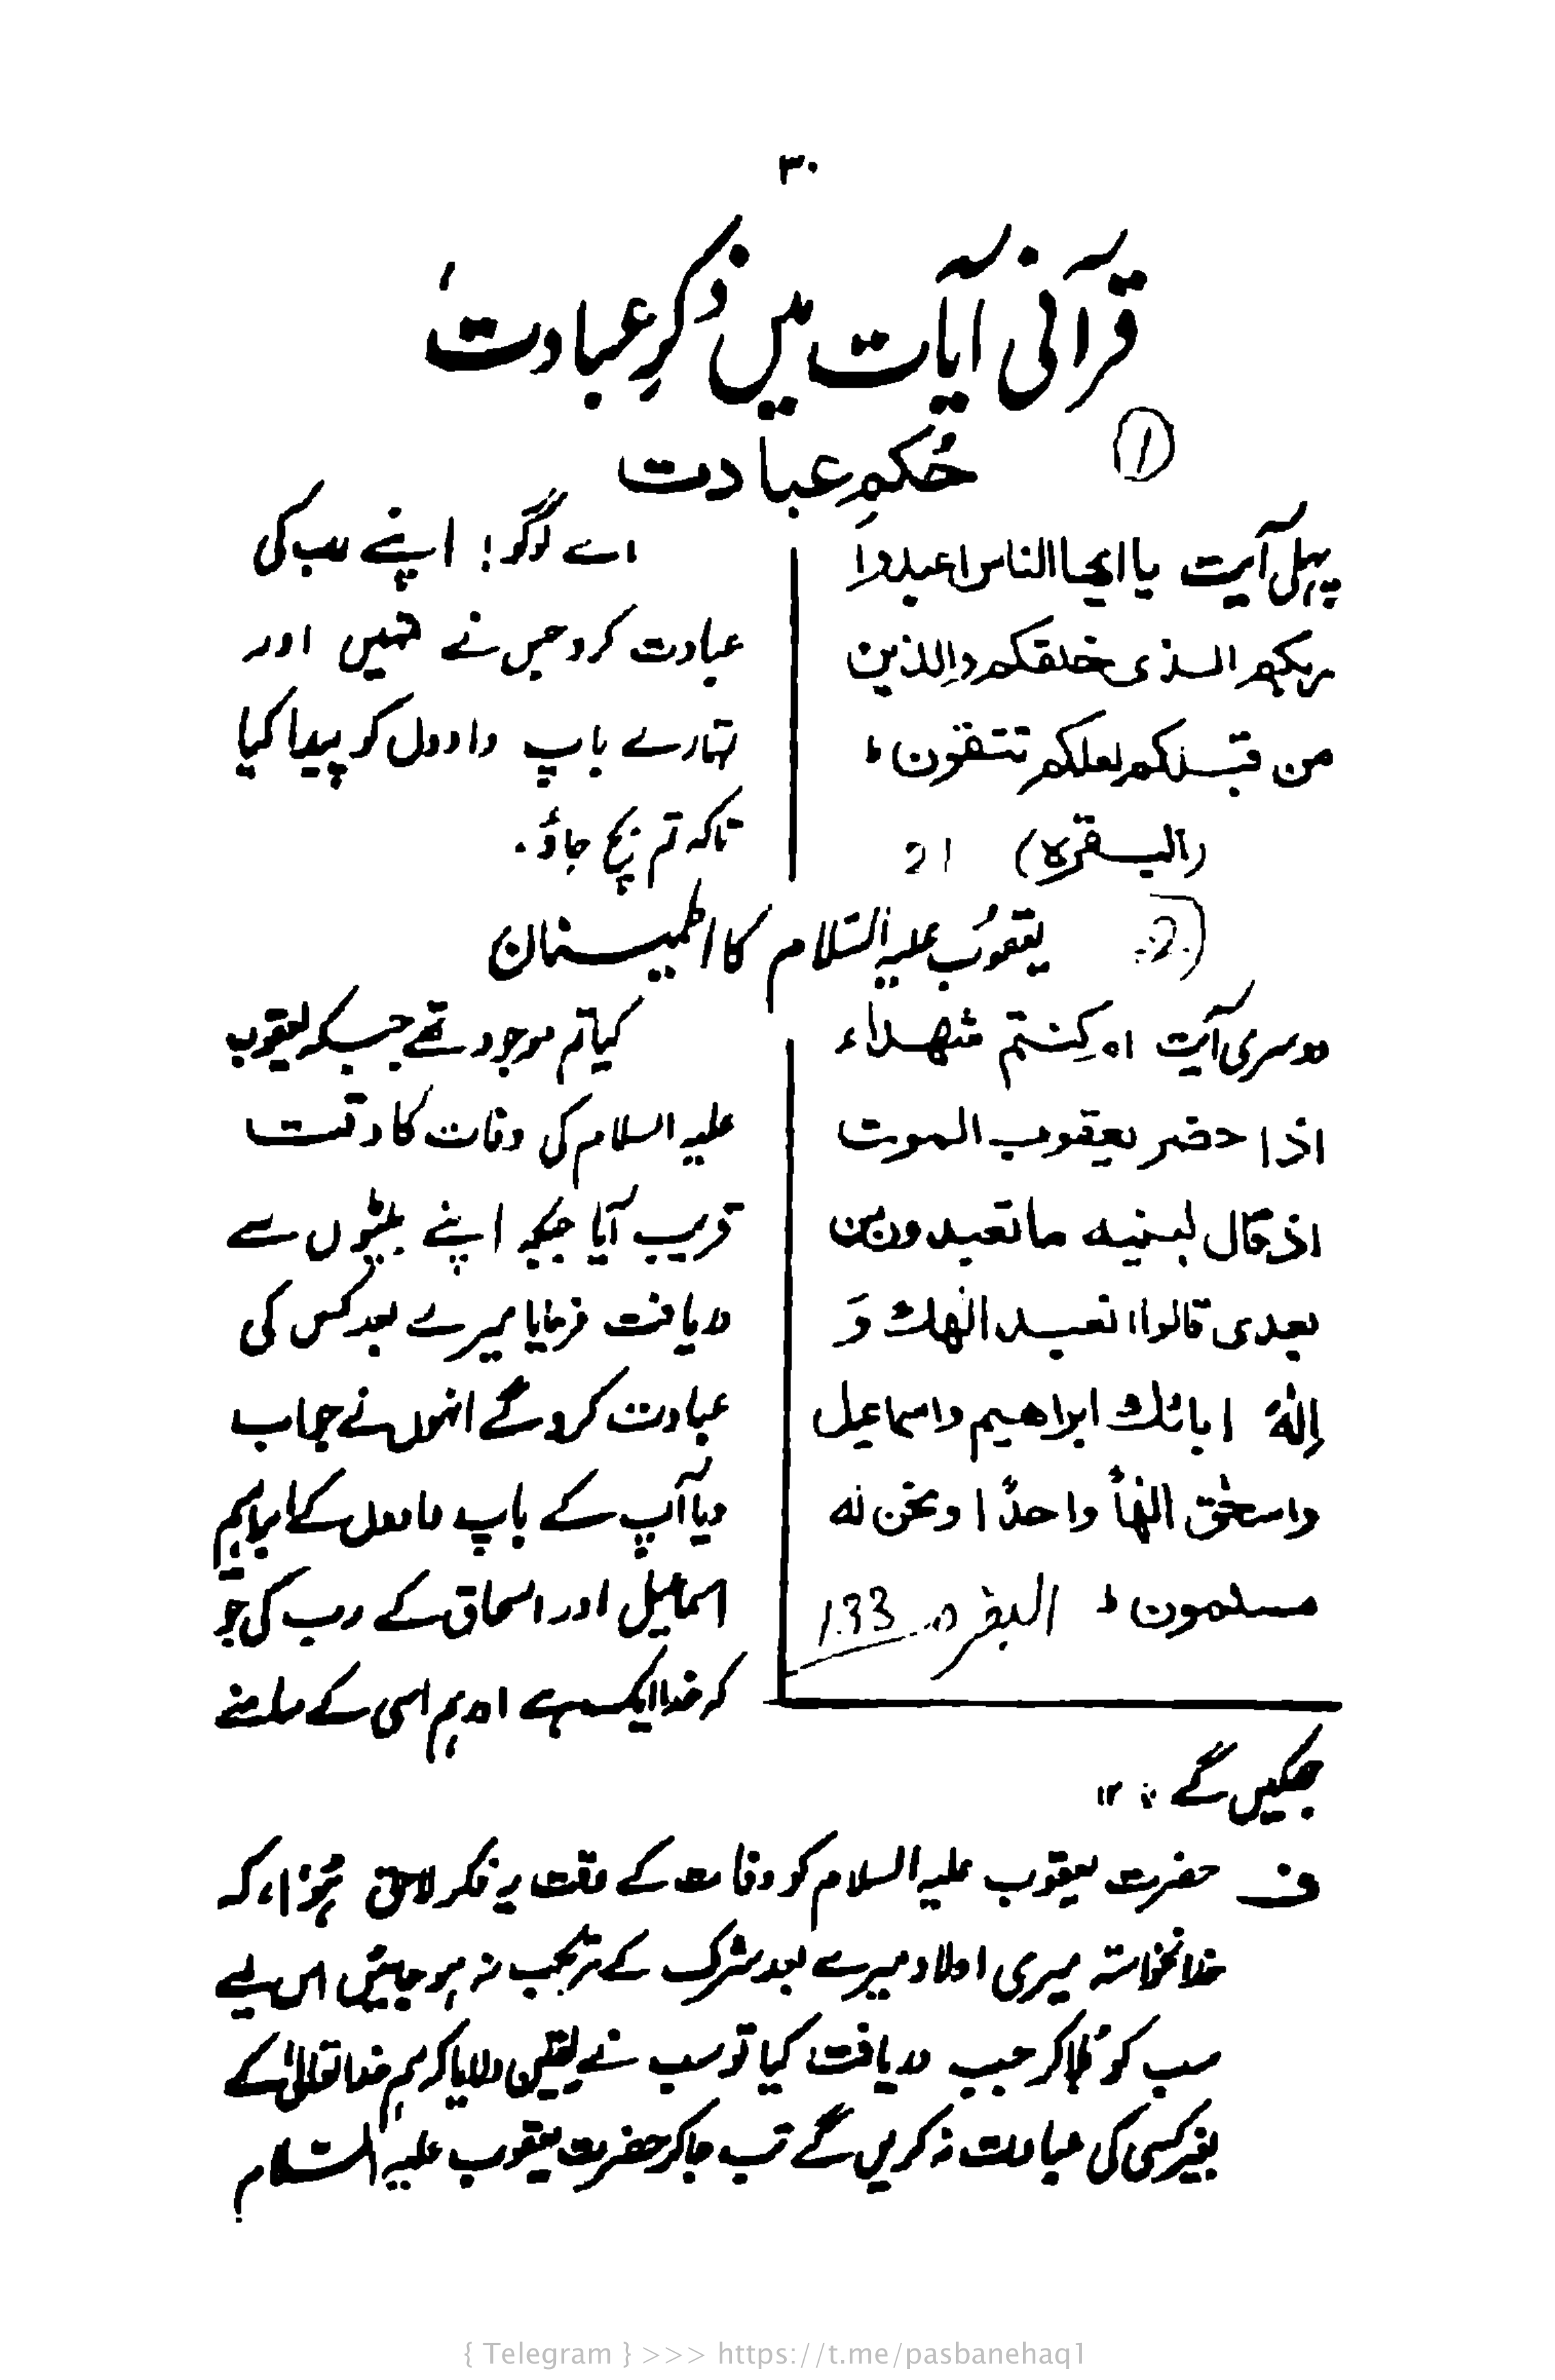 ۳۰
قرآنی آیات میں ذکرِ عبادت
①
حُکمِ عبادت
پہلی آیت یا ایھا الناس اعبدوا
ربکم الذی خلقکم والذین
من قبلکم لعلکم تتقون ط
(البقرة) 21
اے لوگو! اپنے رب کی
عبادت کرو جس نے تمہیں اور
تمہارے باپ دادوں کو پیدا کیا
تاکہ تم بچ جاؤ.
②
یعقوب علیہ السّلام کا اطمینان
دوسری آیت ام کنتم شھداء
اذا حضر یعقوب الموت
اذ قال لبنیه ما تعبدون من
بعدی قالوا نعبد الٰھك وَ
اِلٰهُ ابائك ابراھیم واسماعیل
واسحٰق الٰھاً واحدًا ونحن له
مسلمون ط البقره 133
کیا تم موجود تھے جبکہ یعقوب
علیہ السلام کی وفات کا وقت
قریب آیا جبکہ اپنے بیٹوں سے
دریافت فرمایا میرے بعد کس کی
عبادت کرو گے انہوں نے جواب
دیا آپ کے باپ دادوں کے ابراہیم
اسماعیل اور اسحاق کے رب کی جو
کہ خدا ایک ہے اور ہم اسی کے سامنے
جھکیں گے ۱۲
ف حضرت یعقوب علیہ السلام کو وفات کے وقت یہ فکر لاحق ہُوا، کہ
خدانخواستہ میری اولاد میرے بعد شرک کے مرتکب نہ ہو جائیں اس لیے
سب کو بُلا کر جب دریافت کیا تو سب نے یقین دلایا کہ ہم خدا تعالیٰ کے
بغیر کسی کی عبادت نہ کریں گے تب جا کر حضرت یعقوب علیہ السّلام
{ Telegram } >>> https://t.me/pasbanehaq1